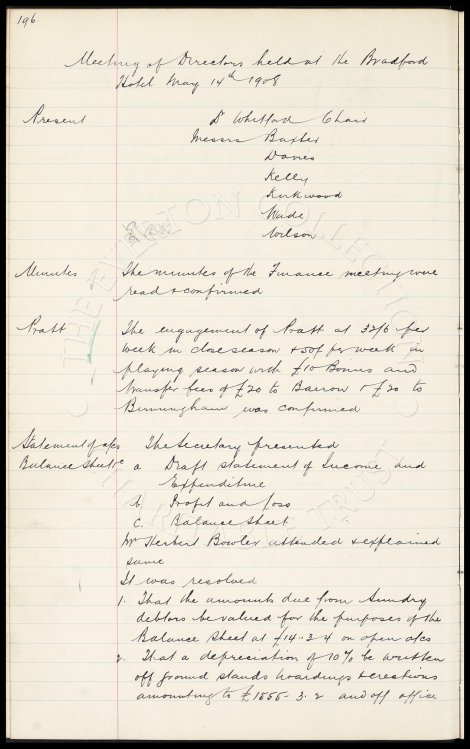 196
Meeting of Directors held at the Bradford
Hotel May 14th 1908
Present Dr Whitford Chair
Messrs Baxter
Davies
Kelly
Kirkwood
Wade
Wilson
Minutes The minutes of the Finance meeting were
read & confirmed
Pratt The engagement of Pratt at 32/6 per
week in close season & 50/ per week in
playing season with £10 Bonus and
transfer fees of £20 to Barrow & £20 to
Birmingham was confirmed
Statement of a/cs The Secretary presented
Balance Sheet &c a Draft Statement of Income and
Expenditure
b Profit and Loss
c. Balance Sheet
Mr Herbert Bowler attended & explained
same
It was resolved
1. That the amounts due from Sundry
debtors be valued for the purposes of the
Balance Sheet at £14-3-4 on open a/cs
2. That a depreciation of 10% be written
off ground stands hoardings & erections
amounting to £1555-3-2 and off office
THE EVERTON COLLECTION
CHARITABLE TRUST